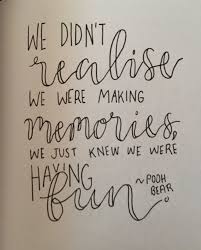 WE DIDN'T
realise
WE WERE MAKING
memories,
WE JUST KNEW WE WERE
HAVING
fun.
~POOH
BEAR